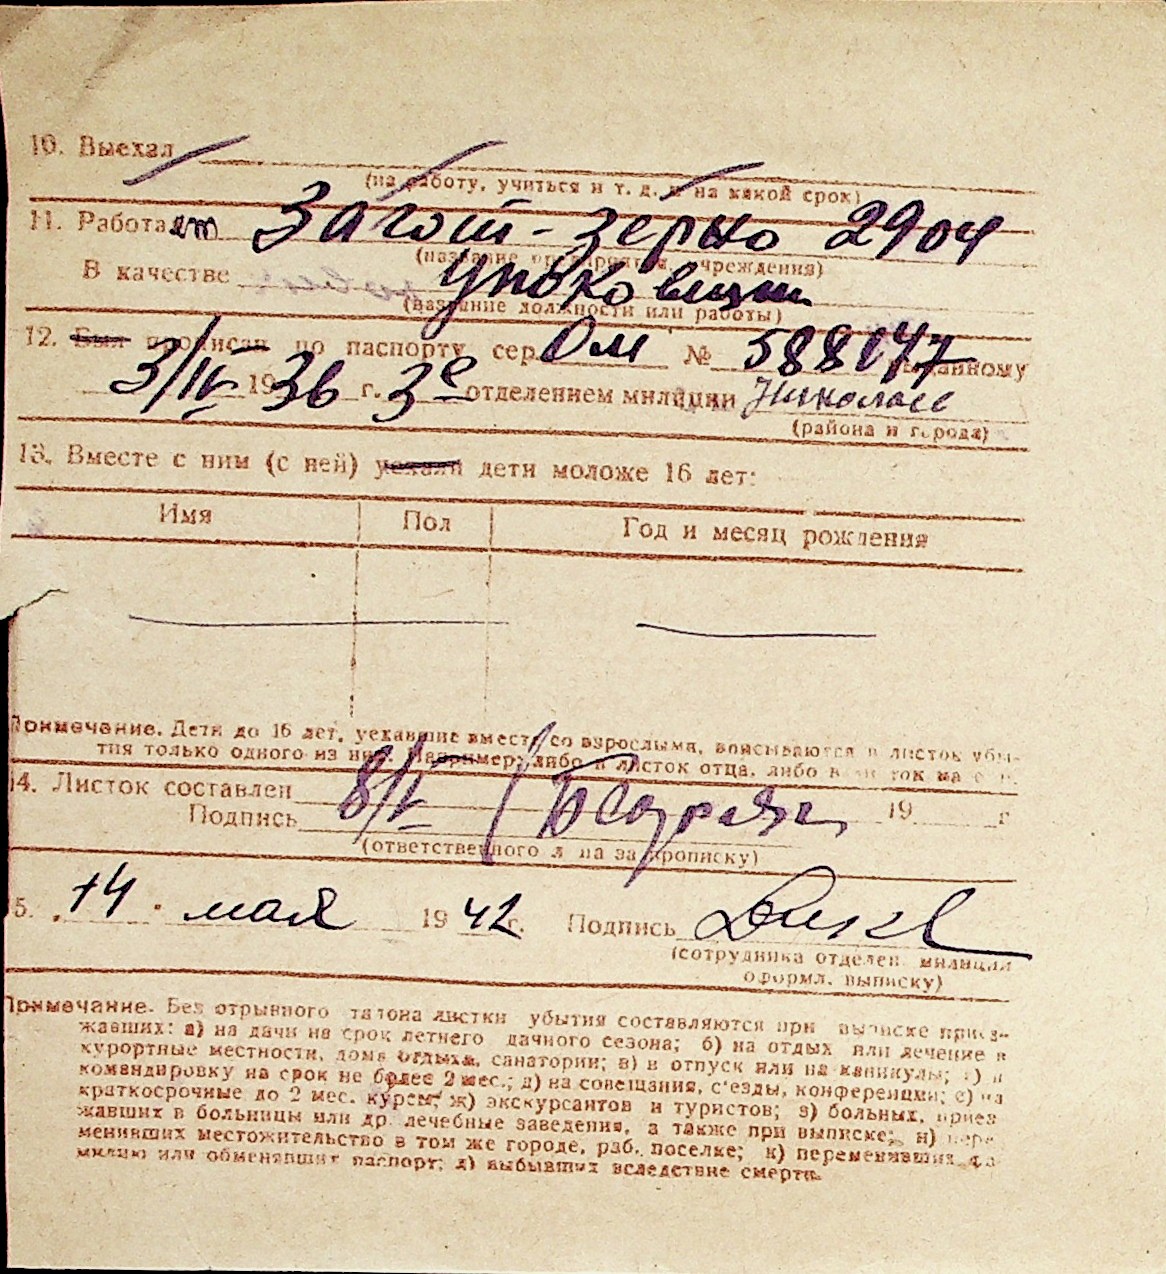 10. Выехал
(на работу, учиться и т. д. и на какой срок)
11. Работает Загот-зерно 2904
(название предприятия, учреждения)
В качестве упаковщик
(название должности или работы)
12. Был прописан по паспорту сер. ОМ № 588147 выданному
3/IV 1936 г. 3е отделением милиции Николаев
(района и города)
13. Вместе с ним (с ней) уехали дети моложе 16 лет:
Имя Пол Год и месяц рождения
Примечание. Дети до 16 лет, уехавшие вместе со взрослыми, вписываются в листок убы-
тия только одного из них. Например: либо в листок отца, либо в листок ма
14. Листок составлен 8/V 19 г
Подпись
(ответственного л на за прописку)
15. 14 мая 1942 г. Подпись
(сотрудника отделен. милиции
оформл. выписку)
Примечание. Без отрывного талона листки убытия составляются при выписке приез-
жавших: а) на дачи на срок летнего дачного сезона; б) на отдых или лечение в
курортные местности, дома отдыха, санатории; в) в отпуск или на каникулы; г) в
командировку на срок не более 2 мес.; д) на совещания, с'езды, конференции; е) на
краткосрочные до 2 мес. курсы; ж) экскурсантов и туристов; з) больных, приез
жавших в больницы или др. лечебные заведения, а также при выписке; и) пере-
менивших местожительство в том же городе, раб. поселке; к) переменивших фа
милию или обменявших паспорт; л) выбывших вследствие смерти.